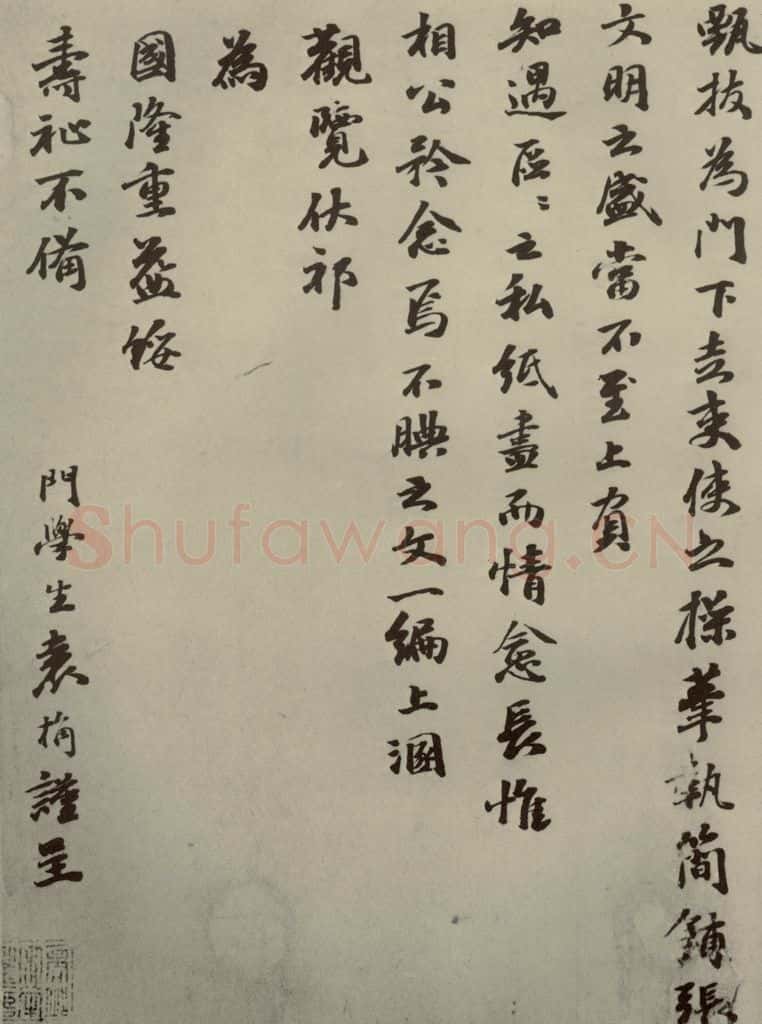 甄拔為門下走吏使之操觚執簡鋪張
文明之盛當不至上負
知遇區〻之私紙盡而情愈長惟
相公矜念焉不腆之文一編上溷
觀覽伏祁
為
國隆重益綏
壽祉不備
門學生袁桷謹呈
Shufawang.CN